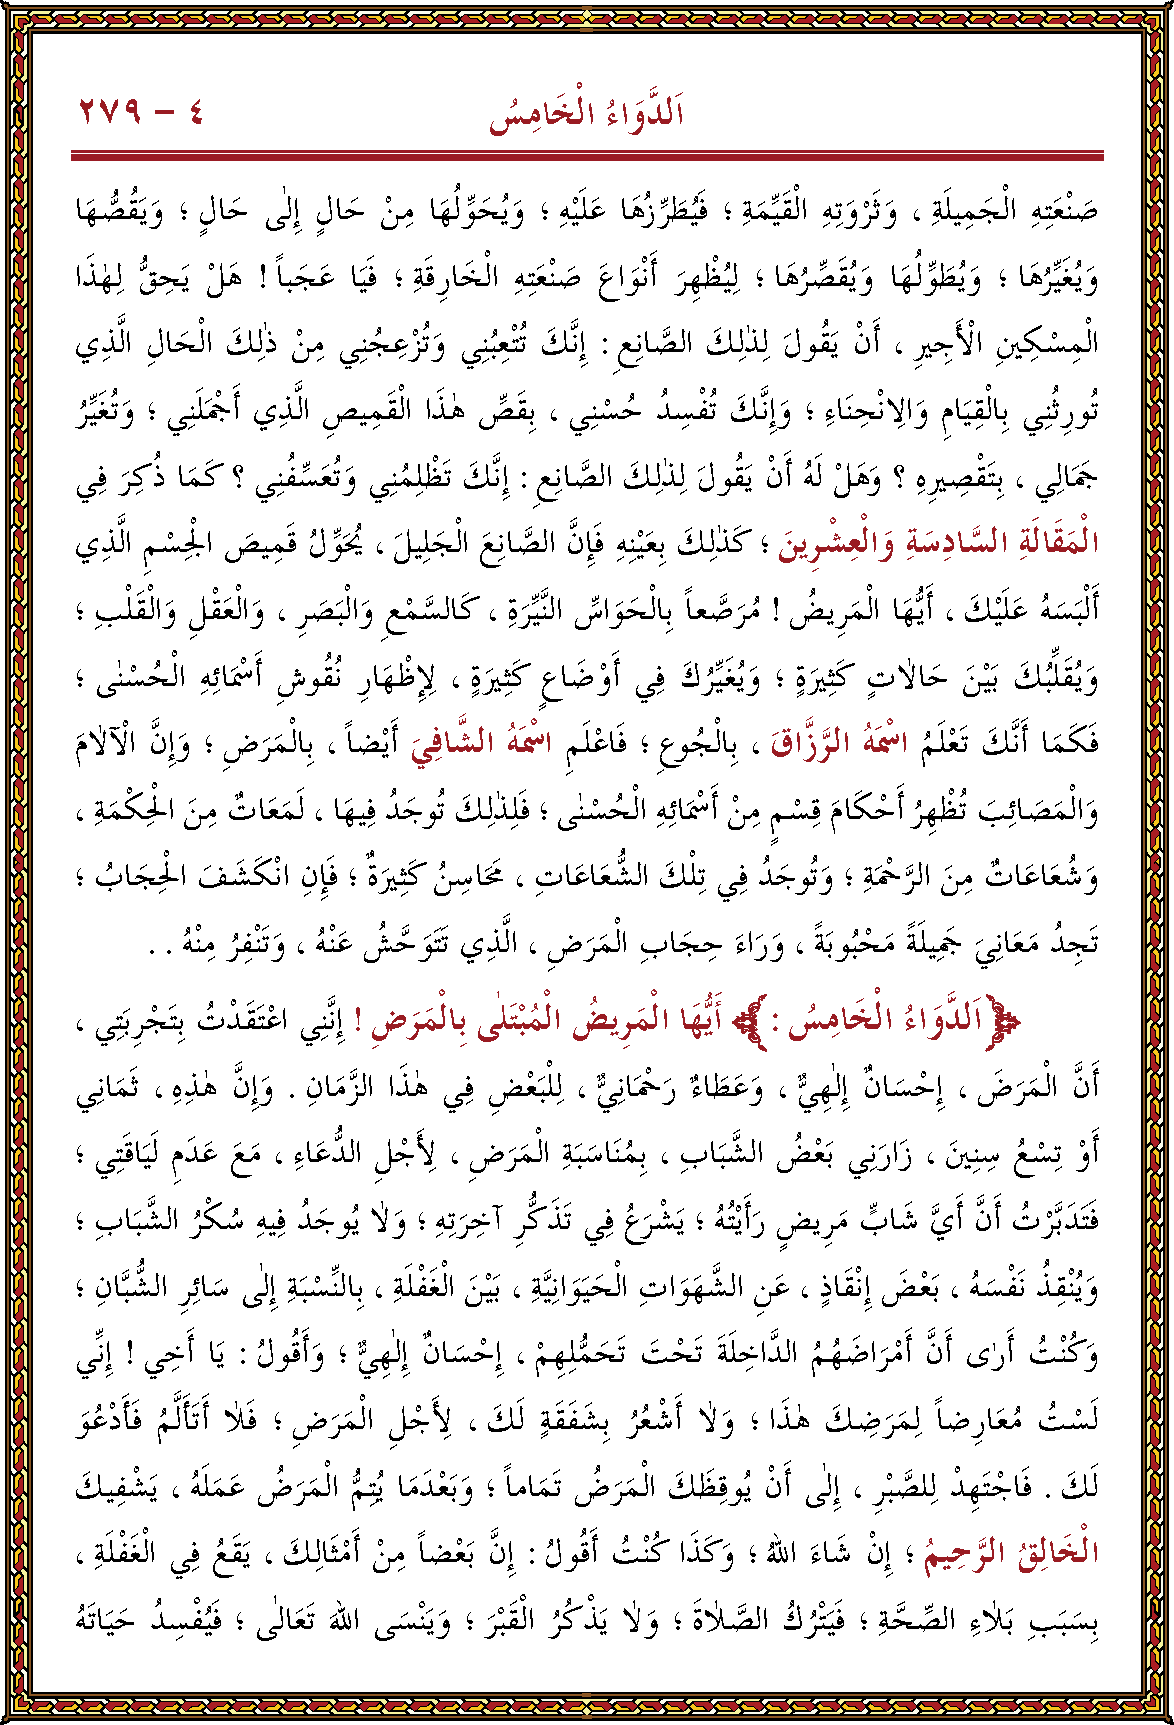 اَلدَّوَاءُ الْخَامِسُ ٤ - ٢٧٩
صَنْعَتِهِ الْجَمِيلَةِ ، وَثَرْوَتِهِ الْقَيِّمَةِ ؛ فَيُطَرِّزُهَا عَلَيْهِ ؛ وَيُحَوِّلُهَا مِنْ حَالٍ إِلٰى حَالٍ ؛ وَيَقُصُّهَا
وَيُغَيِّرُهَا ؛ وَيُطَوِّلُهَا وَيُقَصِّرُهَا ؛ لِيُظْهِرَ أَنْوَاعَ صَنْعَتِهِ الْخَارِقَةِ ؛ فَيَا عَجَباً ! هَلْ يَحِقُّ لِهٰذَا
الْمِسْكِينِ الْأَجِيرِ ، أَنْ يَقُولَ لِذٰلِكَ الصَّانِعِ : إِنَّكَ تُتْعِبُنِي وَتُزْعِجُنِي مِنْ ذٰلِكَ الْحَالِ الَّذِي
تُورِثُنِي بِالْقِيَامِ وَالِانْحِنَاءِ ؛ وَإِنَّكَ تُفْسِدُ حُسْنِي ، بِقَصِّ هٰذَا الْقَمِيصِ الَّذِي أَجْمَلَنِي ؛ وَتُغَيِّرُ
جَمَالِي ، بِتَقْصِيرِهِ ؟ وَهَلْ لَهُ أَنْ يَقُولَ لِذٰلِكَ الصَّانِعِ : إِنَّكَ تَظْلِمُنِي وَتُعَسِّفُنِي ؟ كَمَا ذُكِرَ فِي
الْمَقَالَةِ السَّادِسَةِ وَالْعِشْرِينَ ؛ كَذٰلِكَ بِعَيْنِهِ فَإِنَّ الصَّانِعَ الْجَلِيلَ ، يُحَوِّلُ قَمِيصَ الْجِسْمِ الَّذِي
أَلْبَسَهُ عَلَيْكَ ، أَيُّهَا الْمَرِيضُ ! مُرَصَّعاً بِالْحَوَاسِّ النَّيِّرَةِ ، كَالسَّمْعِ وَالْبَصَرِ ، وَالْعَقْلِ وَالْقَلْبِ ؛
وَيُقَلِّبُكَ بَيْنَ حَالَاتٍ كَثِيرَةٍ ؛ وَيُغَيِّرُكَ فِي أَوْضَاعٍ كَثِيرَةٍ ، لِإِظْهَارِ نُقُوشِ أَسْمَائِهِ الْحُسْنٰى ؛
فَكَمَا أَنَّكَ تَعْلَمُ اسْمَهُ الرَّزَّاقَ ، بِالْجُوعِ ؛ فَاعْلَمِ اسْمَهُ الشَّافِيَ أَيْضاً ، بِالْمَرَضِ ؛ وَإِنَّ الْآلَامَ
وَالْمَصَائِبَ تُظْهِرُ أَحْكَامَ قِسْمٍ مِنْ أَسْمَائِهِ الْحُسْنٰى ؛ فَلِذٰلِكَ تُوجَدُ فِيهَا ، لَمَعَاتٌ مِنَ الْحِكْمَةِ ،
وَشُعَاعَاتٌ مِنَ الرَّحْمَةِ ؛ وَتُوجَدُ فِي تِلْكَ الشُّعَاعَاتِ ، مَحَاسِنُ كَثِيرَةٌ ؛ فَإِنِ انْكَشَفَ الْحِجَابُ ؛
تَجِدُ مَعَانِيَ جَمِيلَةً مَحْبُوبَةً ، وَرَاءَ حِجَابِ الْمَرَضِ ، الَّذِي تَتَوَحَّشُ عَنْهُ ، وَتَنْفِرُ مِنْهُ . .
﴿اَلدَّوَاءُ الْخَامِسُ : ﴾ أَيُّهَا الْمَرِيضُ الْمُبْتَلٰى بِالْمَرَضِ ! إِنَّنِي اعْتَقَدْتُ بِتَجْرِبَتِي ،
أَنَّ الْمَرَضَ ، إِحْسَانٌ إِلٰهِيٌّ ، وَعَطَاءٌ رَحْمَانِيٌّ ، لِلْبَعْضِ فِي هٰذَا الزَّمَانِ . وَإِنَّ هٰذِهِ ، ثَمَانِي
أَوْ تِسْعُ سِنِينَ ، زَارَنِي بَعْضُ الشَّبَابِ ، بِمُنَاسَبَةِ الْمَرَضِ ، لِأَجْلِ الدُّعَاءِ ، مَعَ عَدَمِ لَيَاقَتِي ؛
فَتَدَبَّرْتُ أَنَّ أَيَّ شَابٍّ مَرِيضٍ رَأَيْتُهُ ؛ يَشْرَعُ فِي تَذَكُّرِ آخِرَتِهِ ؛ وَلَا يُوجَدُ فِيهِ سُكْرُ الشَّبَابِ ؛
وَيُنْقِذُ نَفْسَهُ ، بَعْضَ إِنْقَاذٍ ، عَنِ الشَّهَوَاتِ الْحَيَوَانِيَّةِ ، بَيْنَ الْغَفْلَةِ ، بِالنِّسْبَةِ إِلٰى سَائِرِ الشُّبَّانِ ؛
وَكُنْتُ أَرٰى أَنَّ أَمْرَاضَهُمُ الدَّاخِلَةَ تَحْتَ تَحَمُّلِهِمْ ، إِحْسَانٌ إِلٰهِيٌّ ؛ وَأَقُولُ : يَا أَخِي ! إِنِّي
لَسْتُ مُعَارِضاً لِمَرَضِكَ هٰذَا ؛ وَلَا أَشْعُرُ بِشَفَقَةٍ لَكَ ، لِأَجْلِ الْمَرَضِ ؛ فَلَا أَتَأَلَّمُ فَأَدْعُوَ
لَكَ . فَاجْتَهِدْ لِلصَّبْرِ ، إِلٰى أَنْ يُوقِظَكَ الْمَرَضُ تَمَاماً ؛ وَبَعْدَمَا يُتِمُّ الْمَرَضُ عَمَلَهُ ، يَشْفِيكَ
الْخَالِقُ الرَّحِيمُ ؛ إِنْ شَاءَ اللهُ ؛ وَكَذَا كُنْتُ أَقُولُ : إِنَّ بَعْضاً مِنْ أَمْثَالِكَ ، يَقَعُ فِي الْغَفْلَةِ ،
بِسَبَبِ بَلَاءِ الصِّحَّةِ ؛ فَيَتْرُكُ الصَّلَاةَ ؛ وَلَا يَذْكُرُ الْقَبْرَ ؛ وَيَنْسَى اللهَ تَعَالٰى ؛ فَيُفْسِدُ حَيَاتَهُ